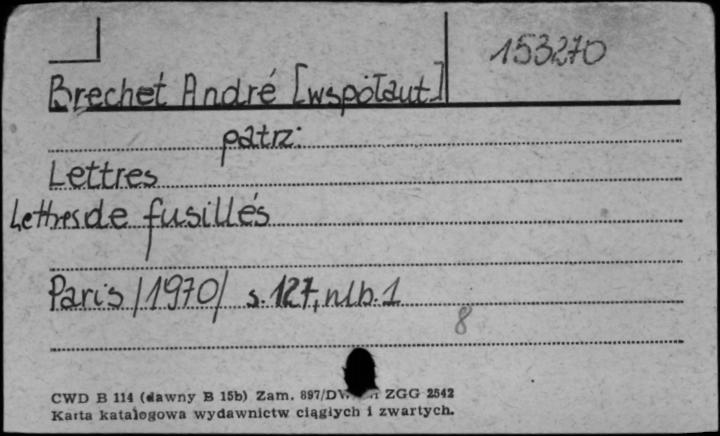 153270
Brechet André [współaut.]
patrz:
Lettres
Lettres de fusillés
Paris /1970/ s. 127, nlb. 1
8
CWD B 114 (dawny B 15b) Zam. 897/DW ZGG 2542
Karta katalogowa wydawnictw ciągłych i zwartych.